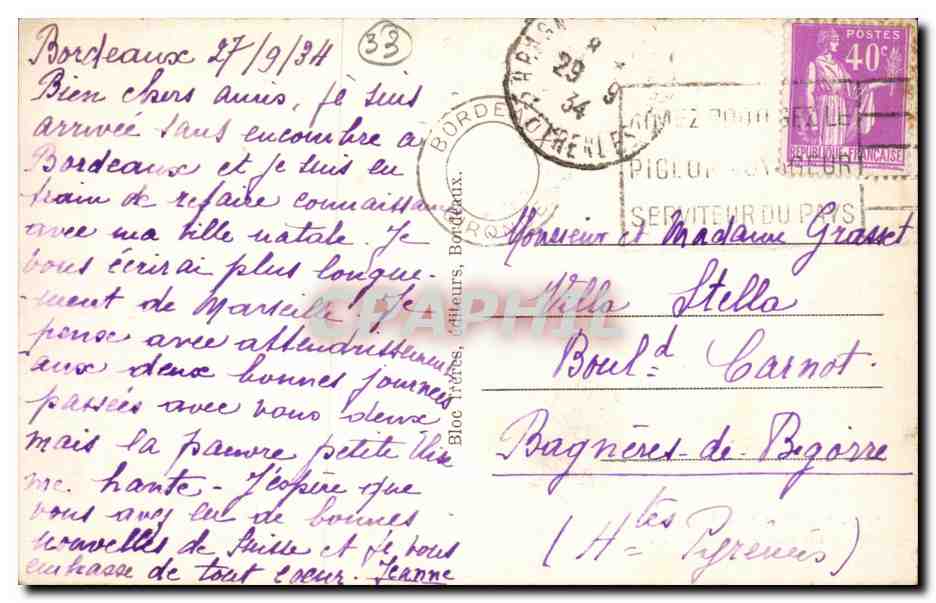 Bordeaux 27/9/34
Bien chers amis, je suis
arrivée sans encombre a
Bordeaux et je suis en
train de refaire connaissan
avec ma ville natale. Je
vous écrirai plus longue-
-ment de Marseille. Je
pense avec attendrissement
aux deux bonnes journées
passées avec vous deux
mais la pauvre petite
me hante - J'espère que
vous avez eu de bonnes
nouvelles de Suisse et je vous
embrasse de tout coeur. Jeanne
33
BORDEAUX
29
9
34
POSTES
40c
REPUBLIQUE FRANÇAISE
SERVITEUR DU PAYS
Bloc frères, éditeurs, Bordeaux.
CPAPHIL
Monsieur et Madame Grasset
Villa Stella
Boul.d Carnot.
Bagnères-de-Bigorre
(Htes Pyrénées)